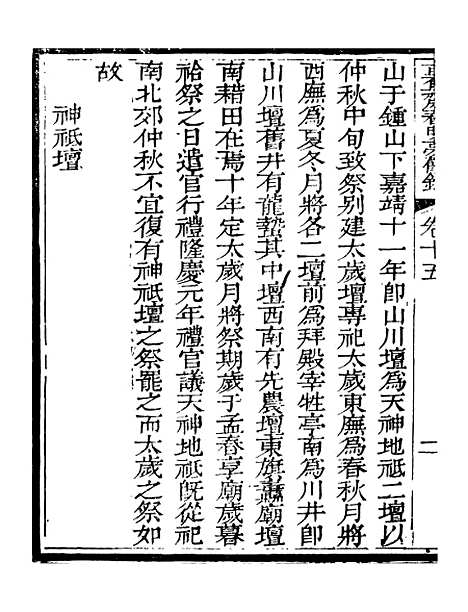 山于鍾山下嘉靖十一年卽山川壇爲天神地祗二壇以
仲秋中旬致祭别建太歲壇專祀太歲東廡爲春秋月將
西廡爲夏冬月將各二壇前爲拜殿宰牲亭南爲川井卽
山川壇舊井有龍蟄其中壇西南有先農壇東旗纛廟壇
南耤田在焉十年定太歲月將祭期歲于孟春享廟歲暮
祫祭之日遣官行禮隆慶元年禮官議天神地祗旣從祀
南北郊仲秋不宜復有神祗壇之祭罷之而太歲之祭如
故
神祗壇
卷十五
二